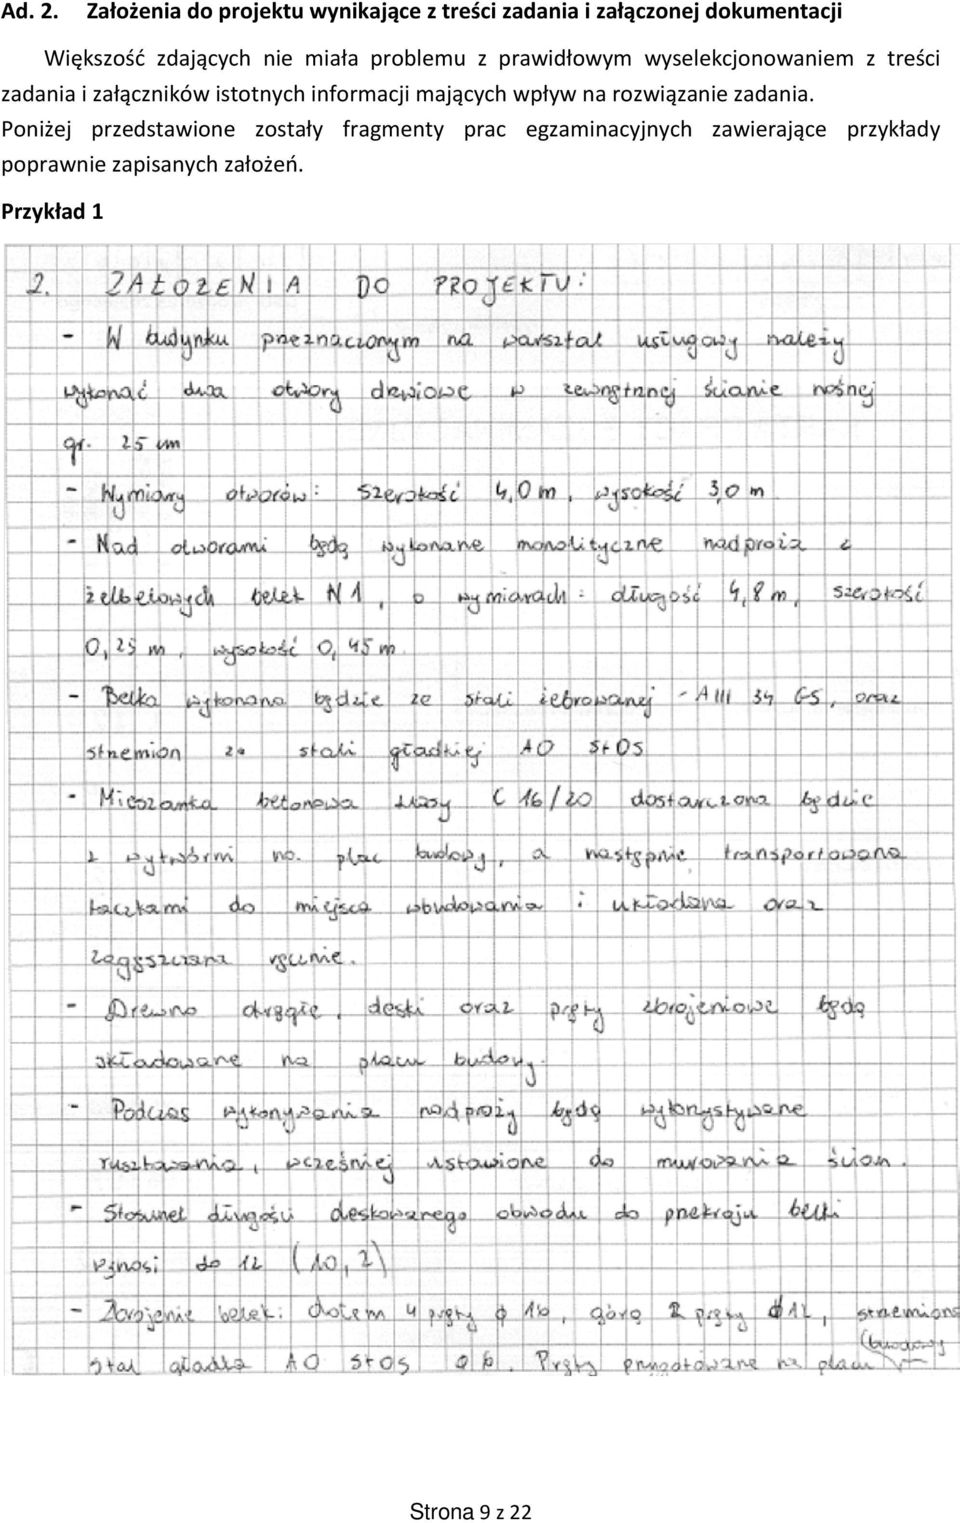 Ad. 2. Założenia do projektu wynikające z treści zadania i załączonej dokumentacji
Większość zdających nie miała problemu z prawidłowym wyselekcjonowaniem z treści
zadania i załączników istotnych informacji mających wpływ na rozwiązanie zadania.
Poniżej przedstawione zostały fragmenty prac egzaminacyjnych zawierające przykłady
poprawnie zapisanych założeń.
Przykład 1
2. ZAŁOŻENIA DO PROJEKTU:
- W budynku przeznaczonym na warsztat usługowy należy
wykonać dwa otwory drzwiowe w zewnętrznej ścianie nośnej
gr. 25 cm
- Wymiary otworów: szerokość 4,0 m, wysokość 3,0 m
- Nad otworami będą wykonane monolityczne nadproża z
żelbetowych belek N1, o wymiarach: długość 4,8 m, szerokość
0,25 m, wysokość 0,45 m.
- Belka wykonana będzie ze stali żebrowanej - AIII 34 GS, oraz
strzemion ze stali gładkiej AO StOS
- Mieszanka betonowa klasy C 16/20 dostarczona będzie
z wytwórni na plac budowy, a następnie transportowana
taczkami do miejsca wbudowania i układana oraz
zagęszczana ręcznie.
- Drewno okrągłe, deski oraz pręty zbrojeniowe będą
składowane na placu budowy.
- Podczas wykonywania nadproży będą wykorzystywane
rusztowania, wcześniej ustawione do murowania ścian.
- Stosunek długości deskowanego obwodu do przekroju belki
wynosi do 12 (10,2)
- Zbrojenie belek: dołem 4 pręty φ 16, górą 2 pręty φ12, strzemiona
stal gładka AO StOS φ 6. Pręty przygotowane na placu budowy